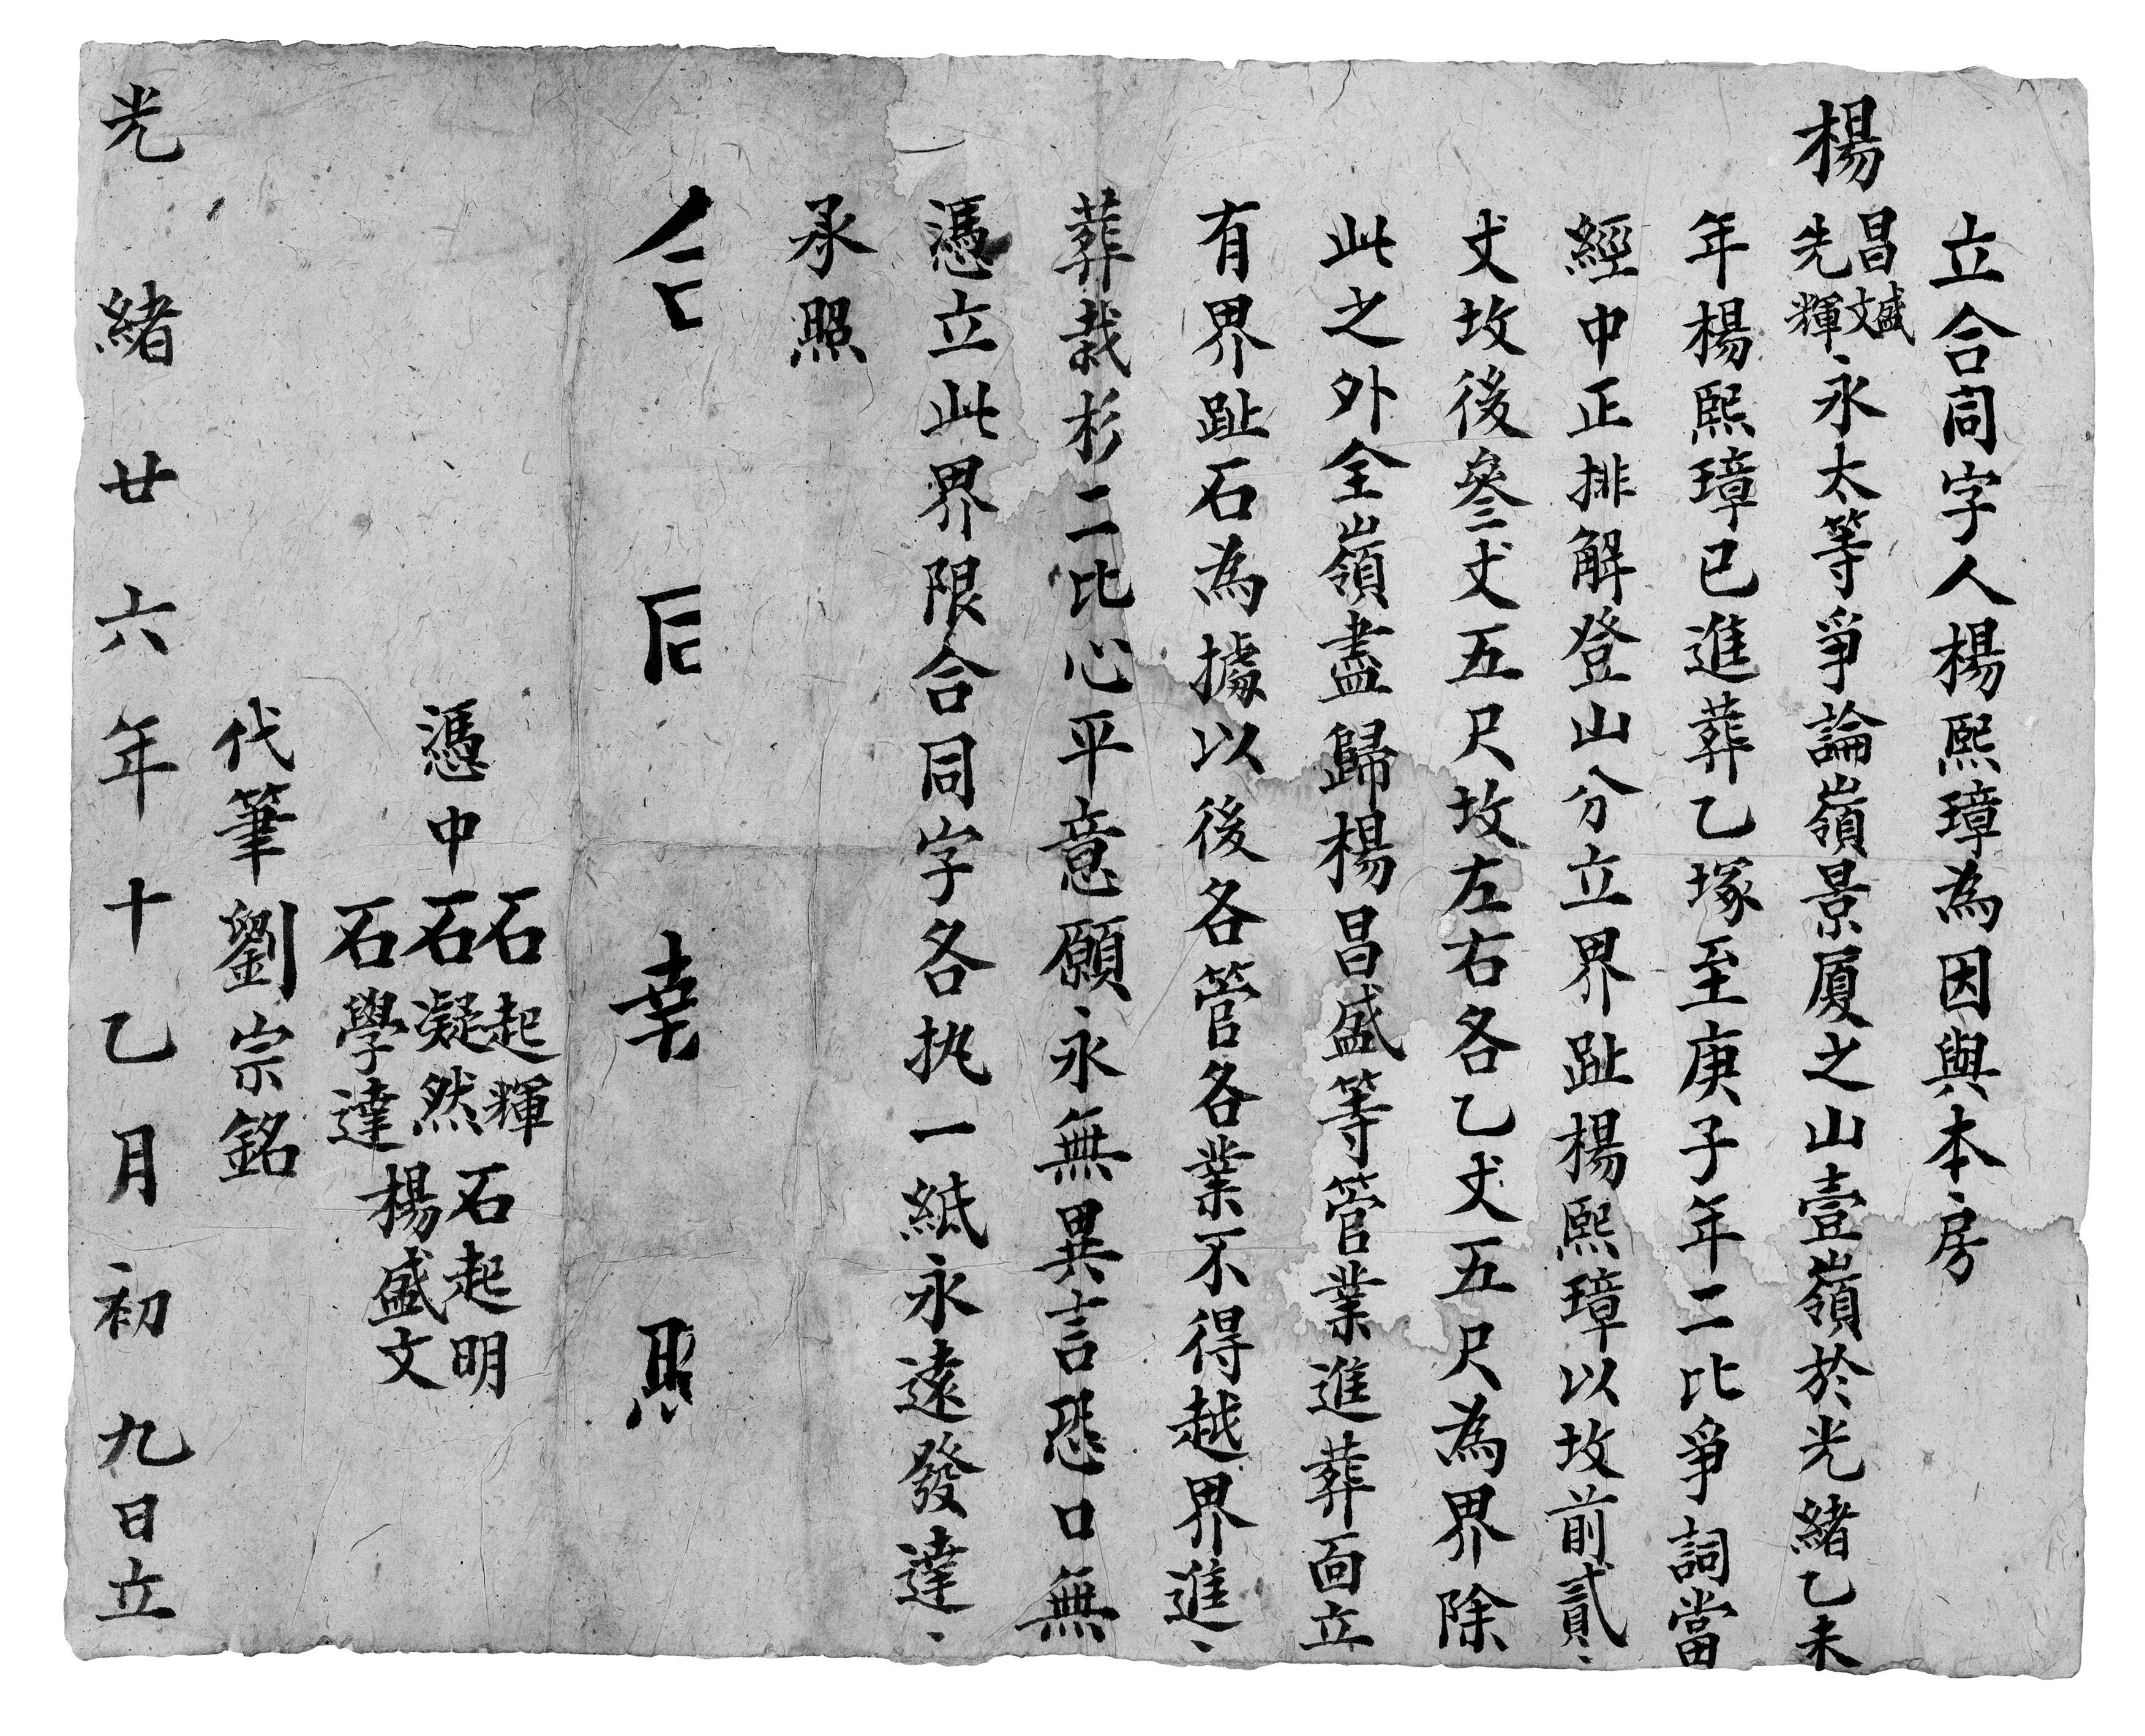 立合同字人楊熙璋為因與本房
楊昌盛文先輝永太等爭論嶺景厦之山壹嶺於光緒乙未
年楊熙璋已進葬乙塚至庚子年二比爭詞當
經中正排解登山分立界趾楊熙璋以坟前貳
丈坟後叄丈五尺坟左右各乙丈五尺為界除
此之外全嶺盡歸楊昌盛等管業進葬面立
有界趾石為據以後各管各業不得越界進
葬栽杉二比心平意願永無異言恐口無
憑立此界限合同字各执一紙永遠發達
承照
憑中
石起輝
石凝然
石學達
石起明
楊盛文
代筆劉宗銘
光緒廿六年十乙月初九日立